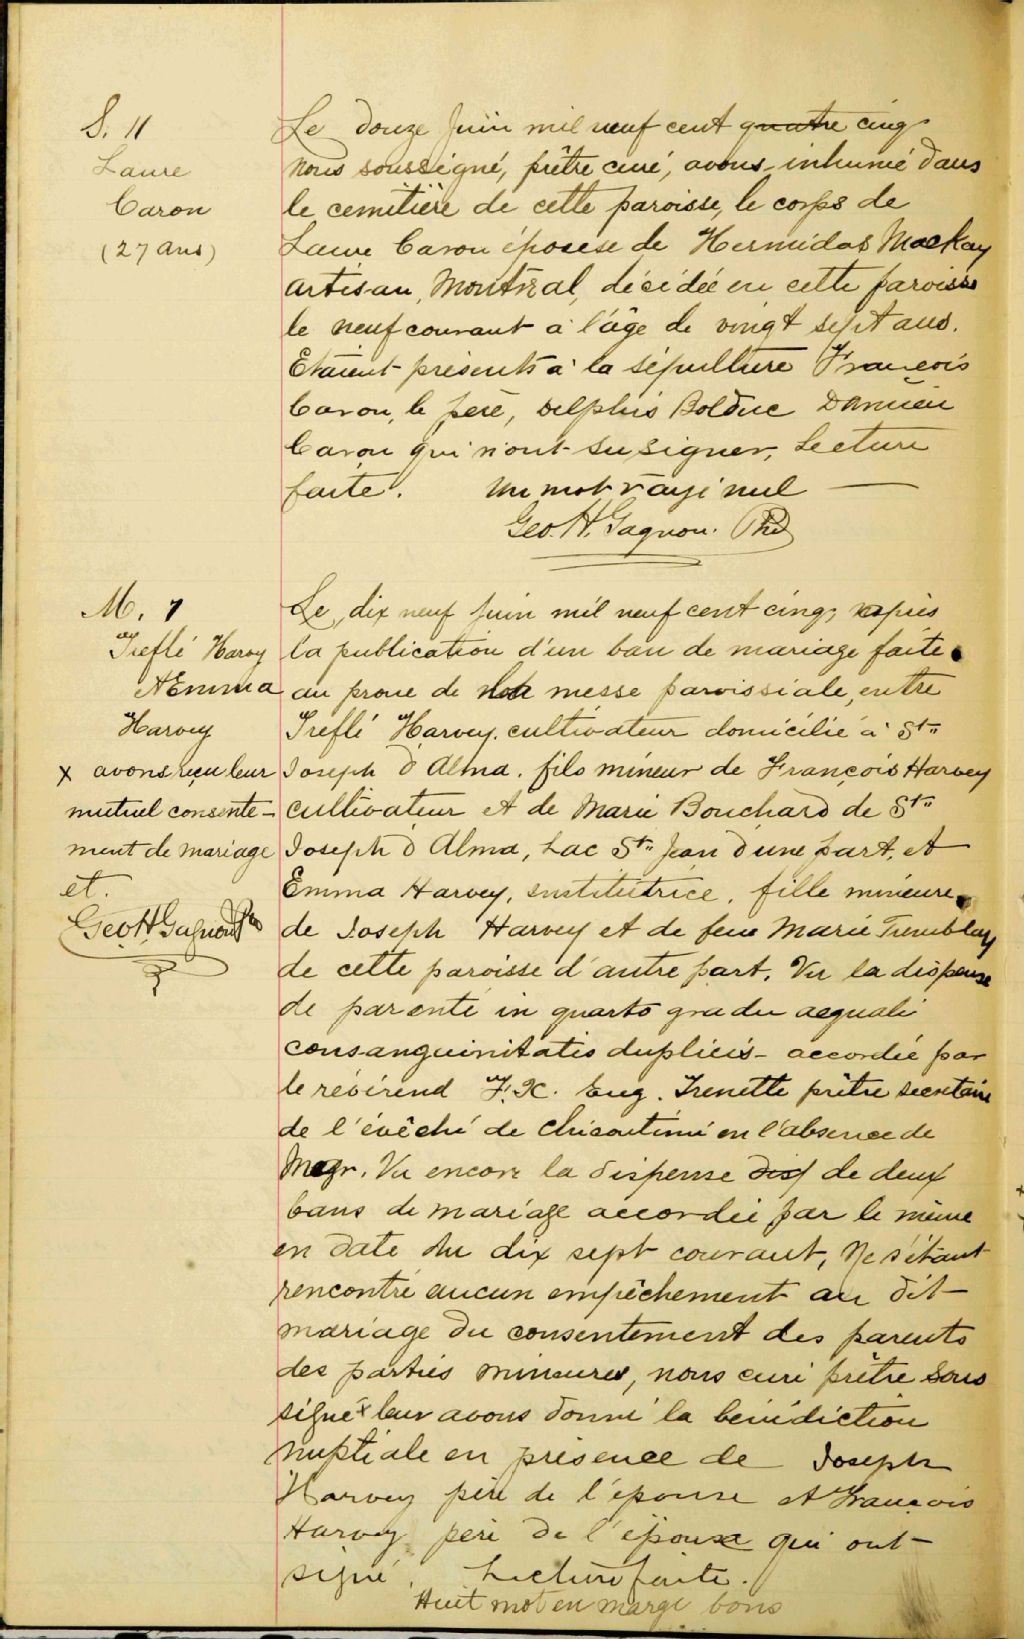 S. 11
Laure
Caron
(27 ans)
Le douze Juin mil neuf cent quatre cinq
nous soussigné, prêtre curé, avons inhumé dans
le cemitière de cette paroisse, le corps de
Laure Caron épouse de Hermidas Mackay
artisan, Montréal, décédée en cette paroisse
le neuf courant à l'âge de vingt sept ans.
Etaient présents à la sépulture François
Caron, le père, Delphis Bolduc Damien
Caron qui n'ont su signer, Lecture
faite. Un mot rayé nul
Geo. H. Gagnon. Ptre
M. 7
Treflé Harvey
& Emma
Harvey
x avons reçu leur
mutuel consente-
ment de mariage
et.
Geo H Gagnon Ptre
Le, dix neuf Juin mil neuf cent cinq, après
la publication d'un ban de mariage faite
au prone de messe paroissiale, entre
Treflé Harvey, cultivateur domicilié à St"
Joseph d'Alma, fils mineur de François Harvey
cultivateur et de Marie Bouchard de St"
Joseph d'Alma, Lac St" Jean d'une part, et
Emma Harvey, institutrice, fille mineure
de Joseph Harvey et de feue Marie Tremblay
de cette paroisse d'autre part. Vu la dispense
de parenté in quarto gradu aequali
consanguinitatis duplicis - accordée par
le révérend F. X. Eug. Frenette prêtre secrétaire
de l'évêché de Chicoutimi en l'absence de
Megr. Vu encore la dispense de deux
bans de mariage accordée par le même
en date du dix sept courant, Ne s'étant
rencontré aucun empêchement au dit
mariage du consentement des parents
des parties mineures, nous curé prêtre sous
signé x leur avons donné la bénédiction
nuptiale en présence de Joseph
Harvey père de l'épouse et François
Harvey père de l'époux qui ont
signé. Lecture faite.
Huit mot en marge bons